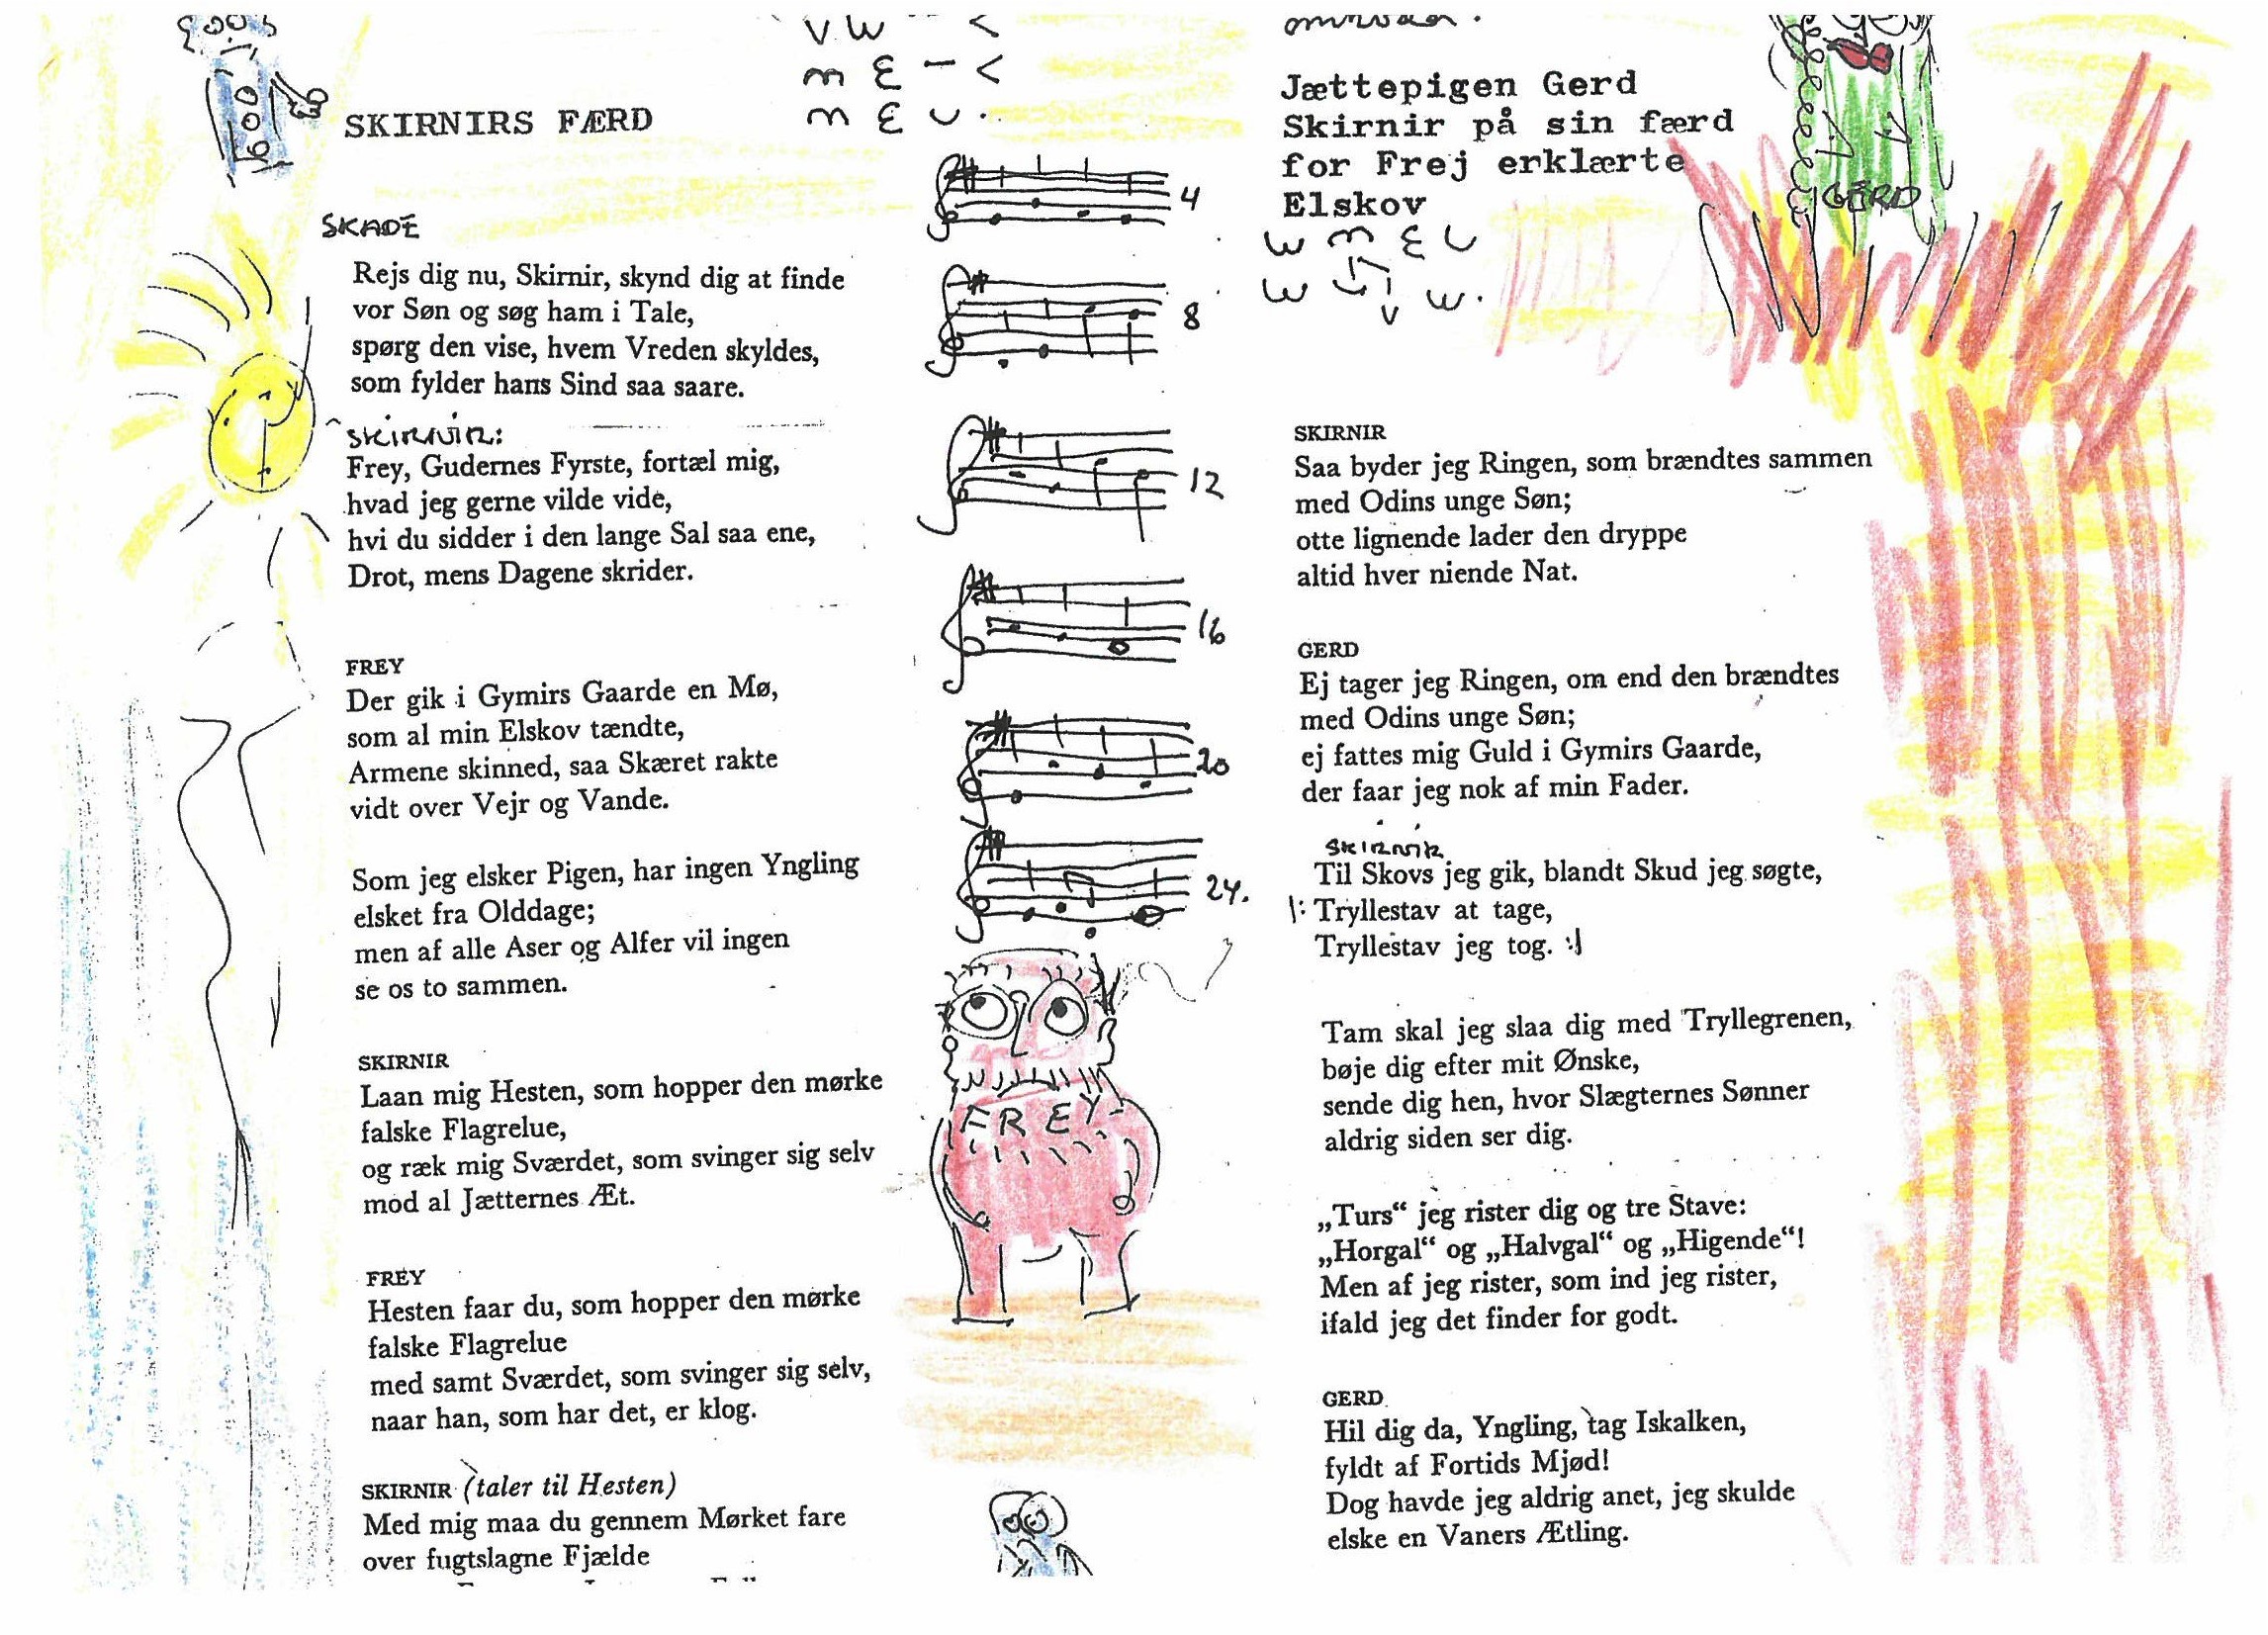 SKIRNIRS FÆRD
SKADE
Rejs dig nu, Skirnir, skynd dig at finde
vor Søn og søg ham i Tale,
spørg den vise, hvem Vreden skyldes,
som fylder hans Sind saa saare.
SKIRNIR:
Frey, Gudernes Fyrste, fortæl mig,
hvad jeg gerne vilde vide,
hvi du sidder i den lange Sal saa ene,
Drot, mens Dagene skrider.
FREY
Der gik i Gymirs Gaarde en Mø,
som al min Elskov tændte,
Armene skinned, saa Skæret rakte
vidt over Vejr og Vande.
Som jeg elsker Pigen, har ingen Yngling
elsket fra Olddage;
men af alle Aser og Alfer vil ingen
se os to sammen.
SKIRNIR
Laan mig Hesten, som hopper den mørke
falske Flagrelue,
og ræk mig Sværdet, som svinger sig selv
mod al Jætternes Æt.
FREY
Hesten faar du, som hopper den mørke
falske Flagrelue
med samt Sværdet, som svinger sig selv,
naar han, som har det, er klog.
SKIRNIR (taler til Hesten)
Med mig maa du gennem Mørket fare
over fugtslagne Fjælde
4
8
12
16
20
24.
FREY
Jættepigen Gerd
Skirnir på sin færd
for Frej erklærte
Elskov
GERD
SKIRNIR
Saa byder jeg Ringen, som brændtes sammen
med Odins unge Søn;
otte lignende lader den dryppe
altid hver niende Nat.
GERD
Ej tager jeg Ringen, om end den brændtes
med Odins unge Søn;
ej fattes mig Guld i Gymirs Gaarde,
der faar jeg nok af min Fader.
SKIRNIR
Til Skovs jeg gik, blandt Skud jeg søgte,
|: Tryllestav at tage,
Tryllestav jeg tog. :|
Tam skal jeg slaa dig med Tryllegrenen,
bøje dig efter mit Ønske,
sende dig hen, hvor Slægternes Sønner
aldrig siden ser dig.
„Turs“ jeg rister dig og tre Stave:
„Horgal“ og „Halvgal“ og „Higende“!
Men af jeg rister, som ind jeg rister,
ifald jeg det finder for godt.
GERD
Hil dig da, Yngling, tag Iskalken,
fyldt af Fortids Mjød!
Dog havde jeg aldrig anet, jeg skulde
elske en Vaners Ætling.